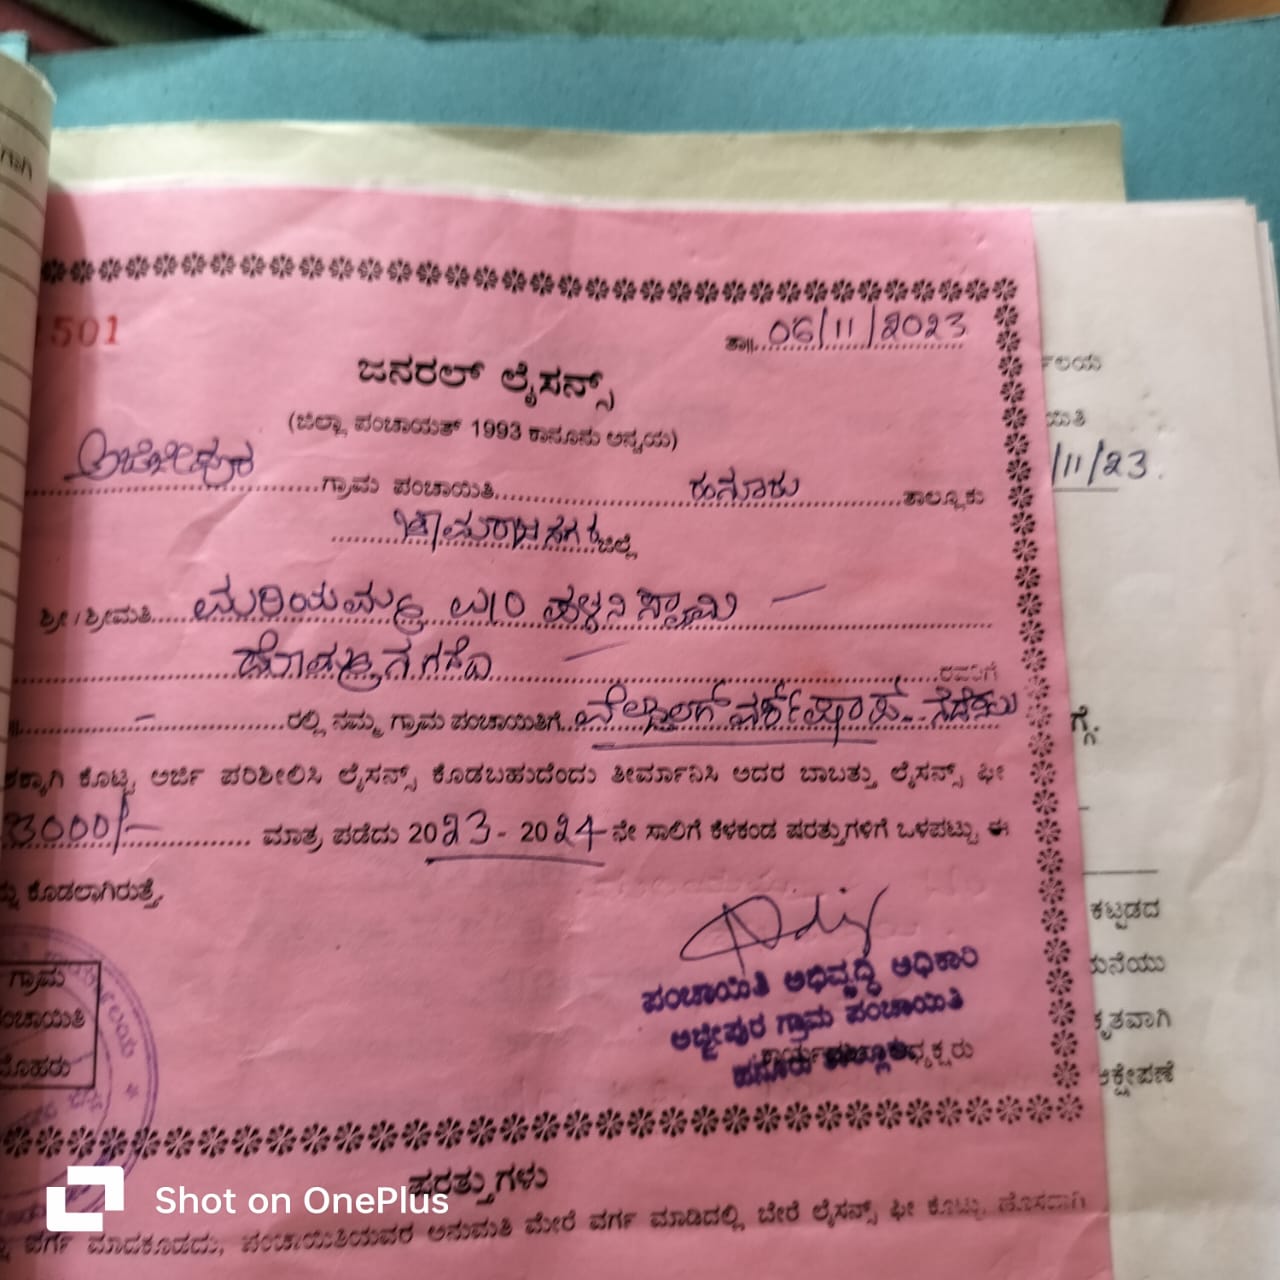 501
ತಾ॥ 06/11/2023
ಜನರಲ್ ಲೈಸನ್ಸ್
(ಜಿಲ್ಲಾ ಪಂಚಾಯತ್ 1993 ಕಾನೂನು ಅನ್ವಯ)
ಅಜ್ಜೀಪುರ ಗ್ರಾಮ ಪಂಚಾಯಿತಿ ಹನೂರು ತಾಲ್ಲೂಕು
ಚಾಮರಾಜನಗರ ಜಿಲ್ಲೆ
ಶ್ರೀ / ಶ್ರೀಮತಿ ಮರಿಯಮ್ಮ W/O ಪಳನಿ ಸ್ವಾಮಿ
ರವರಿಗೆ
ರಲ್ಲಿ ನಮ್ಮ ಗ್ರಾಮ ಪಂಚಾಯಿತಿಗೆ ವೆಲ್ಡಿಂಗ್ ವರ್ಕ್ ಷಾಪ್ ನೆಡೆಸಲು
ಕೊಟ್ಟ ಅರ್ಜಿ ಪರಿಶೀಲಿಸಿ ಲೈಸನ್ಸ್ ಕೊಡಬಹುದೆಂದು ತೀರ್ಮಾನಿಸಿ ಅದರ ಬಾಬತ್ತು ಲೈಸನ್ಸ್ ಫೀ
3000/- ಮಾತ್ರ ಪಡೆದು 2023 - 2024 ನೇ ಸಾಲಿಗೆ ಕೆಳಕಂಡ ಷರತ್ತುಗಳಿಗೆ ಒಳಪಟ್ಟು ಈ
ಕೊಡಲಾಗಿರುತ್ತೆ.
ಪಂಚಾಯಿತಿ ಅಭಿವೃದ್ಧಿ ಅಧಿಕಾರಿ
ಅಜ್ಜೀಪುರ ಗ್ರಾಮ ಪಂಚಾಯಿತಿ
ಹನೂರು ತಾಲ್ಲೂಕು
ಗ್ರಾಮ
ಪಂಚಾಯಿತಿ
ಮೊಹರು
ಷರತ್ತುಗಳು
ವರ್ಗ ಮಾಡಕೂಡದು, ಪಂಚಾಯಿತಿಯವರ ಅನುಮತಿ ಮೇರೆ ವರ್ಗ ಮಾಡಿದಲ್ಲಿ ಬೇರೆ ಲೈಸನ್ಸ್ ಫೀ ಕೊಟ್ಟು ಹೊಸದಾಗಿ
/11/23.
ಕಟ್ಟಡದ
ಆಕ್ಷೇಪಣೆ
Shot on OnePlus